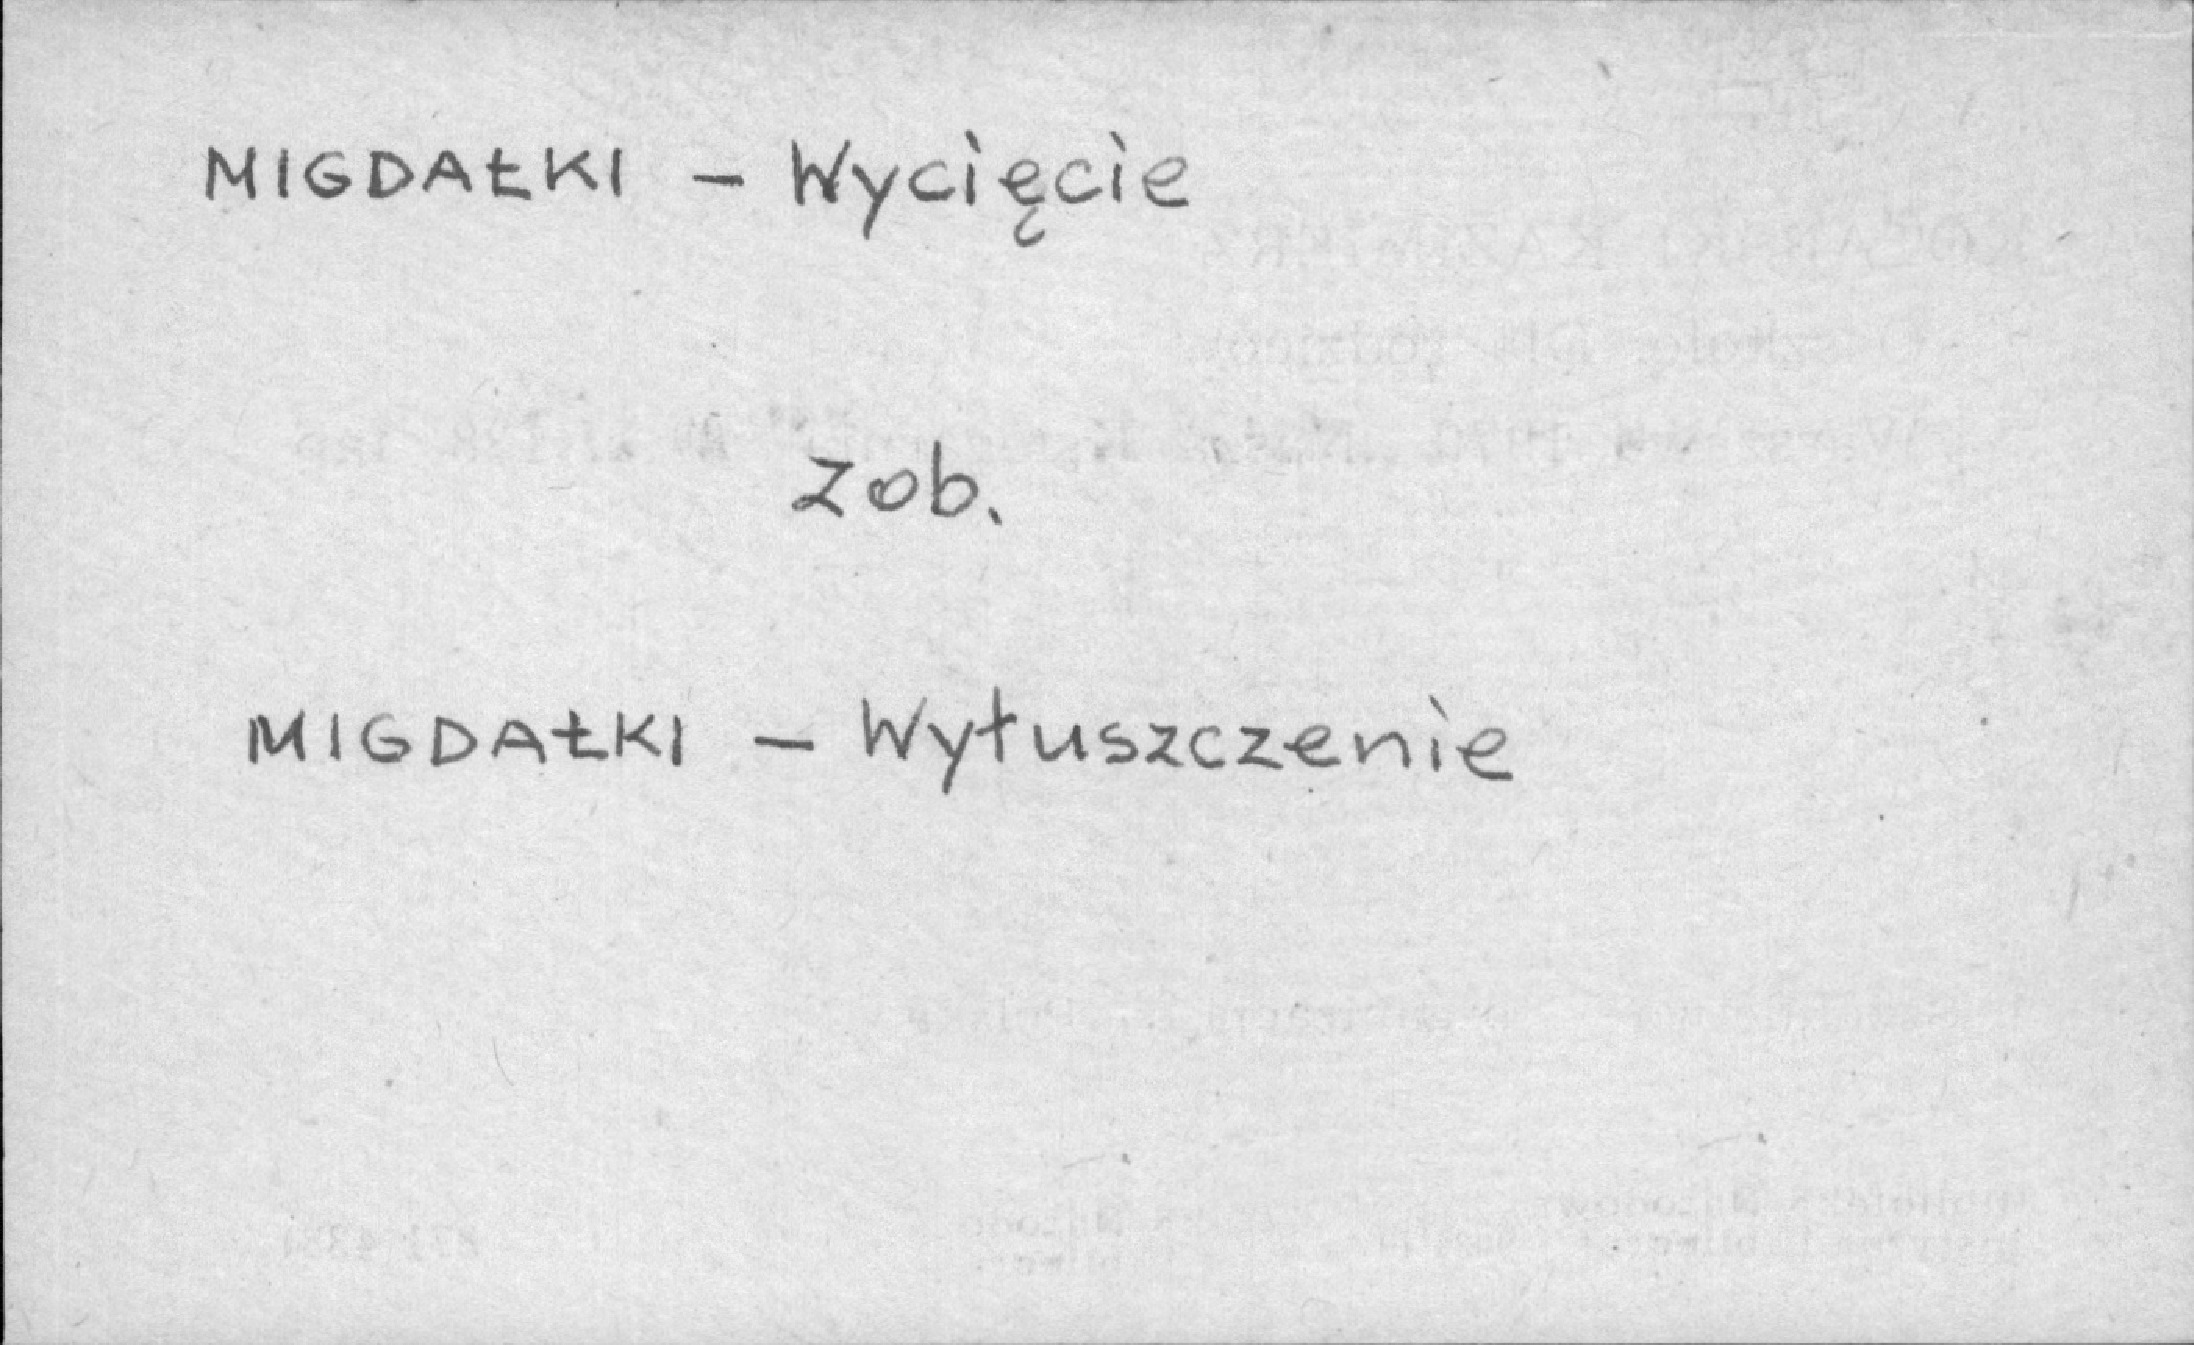 MIGDAŁKI - Wycięcie
zob.
MIGDAŁKI - Wyłuszczenie